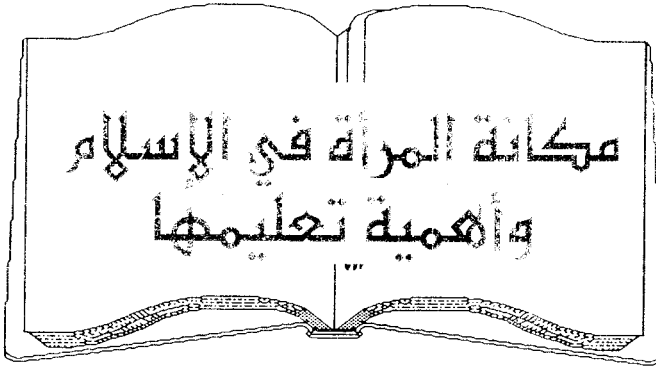 مكانة المرأة في الإسلام
وأهمية تعليمها